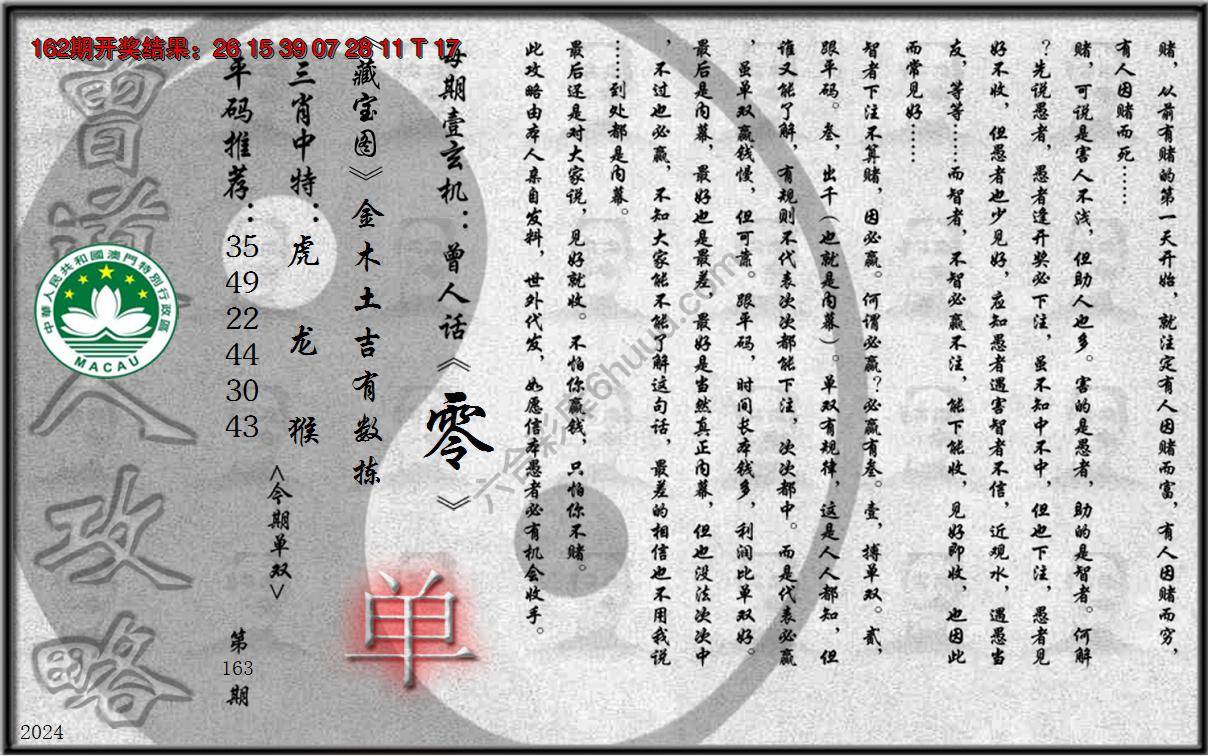 162期开奖结果：26 15 39 07 28 11 T 17
赌，从前有赌的第一天开始，就注定有人因赌而富，有人因赌而穷，
有人因赌而死……
赌，可说是害人不浅，但助人也多。害的是愚者，助的是智者。何解
？先说愚者，愚者逢开奖必下注，虽不知中不中，但也下注，愚者见
好不收，但愚者也少见好，应知愚者遇害智者不信，近观水，遇愚当
友，等等……而智者，不智必赢不注，能下能收，见好即收，也因此
而常见好……
智者下注不算赌，因必赢。何谓必赢？必赢有叁。壹，搏单双。贰，
跟平码。叁，出千（也就是内幕）。单双有规律，这是人人都知，但
谁又能了解，有规则不代表次次都能下注，次次都中。而是代表必赢
，虽单双赢钱慢，但可靠。跟平码，时间长本钱多，利润比单双好。
最后是内幕，最好也是最差，最好是当然真正内幕，但也没法次次中
，不过也必赢，不知大家能不能了解这句话，最差的相信也不用我说
……到处都是内幕。
最后还是对大家说，见好就收。不怕你赢钱，只怕你不赌。
此攻略由本人亲自发料，世外代发，如愿信本愚者必有机会收手。
每期壹玄机：曾人话《零》
《藏宝图》金木土吉有数拣
三肖中特：虎 龙 猴
平码推荐：35 49 22 44 30 43
<今期单双>
单
第163期
曾道人攻略
中華人民共和國澳門特別行政區
MACAU
六合彩库66huuu.com
2024